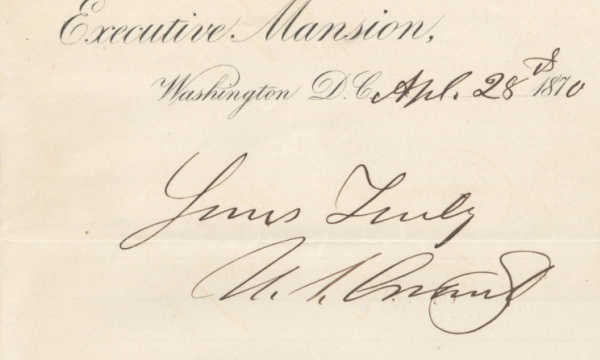 Executive Mansion,
Washington D.C. Apl. 28th 1870
Yours Truly
U. S. Grant